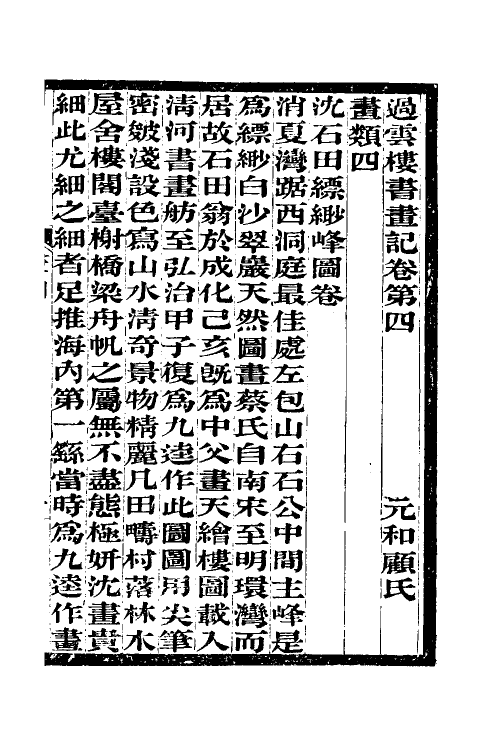 過雲樓書畫記卷第四　元和顧氏
畫類四
沈石田縹緲峰圖卷
消夏灣踞西洞庭最佳處左包山右石公中間主峰是
爲縹緲白沙翠巖天然圖畫蔡氏自南宋至明環灣而
居故石田翁於成化己亥旣爲中父畫天繪樓圖載入
淸河書畫舫至弘治甲子復爲九逵作此圖圖用尖筆
密皴淺設色寫山水淸奇景物精麗凡田疇村落林木
屋舍樓閣臺榭橋梁舟帆之屬無不盡態極妍沈畫貴
細此尤細之細者足推海內第一繇當時爲九逵作畫